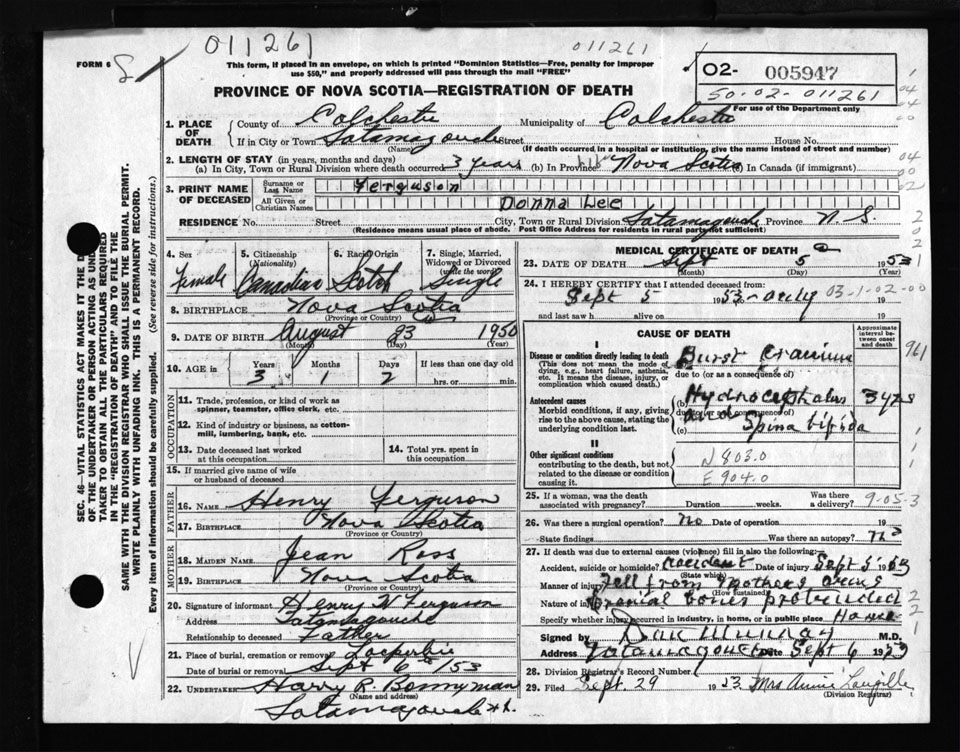 011261
011261
FORM 6
This form, if placed in an envelope, on which is printed "Dominion Statistics—Free, penalty for improper
use $50," and properly addressed will pass through the mail "FREE"
O2- 005947
50-02-011261
For use of the Department only
PROVINCE OF NOVA SCOTIA—REGISTRATION OF DEATH
1. PLACE OF DEATH
County of Colchester Municipality of Colchester
If in City or Town Tatamagouche Street House No.
(Name) (If death occurred in a hospital or institution, give the name instead of street and number)
2. LENGTH OF STAY (in years, months and days)
(a) In City, Town or Rural Division where death occurred 3 years (b) In Province Nova Scotia (c) In Canada (if immigrant)
3. PRINT NAME OF DECEASED
Surname or Last Name Ferguson
All Given or Christian Names Donna Lee
RESIDENCE No. Street City, Town or Rural Division Tatamagouche Province N. S.
(Residence means usual place of abode. Post Office Address for residents in rural parts not sufficient)
4. Sex Female
5. Citizenship (Nationality) Canadian
6. Racial Origin Scotch
7. Single, Married, Widowed or Divorced (write the word) Single
8. BIRTHPLACE Nova Scotia
(Province or Country)
9. DATE OF BIRTH August 23 1950
(Month) (Day) (Year)
10. AGE in Years 3 Months 1 Days 2 If less than one day old
hrs. or min.
OCCUPATION
11. Trade, profession, or kind of work as spinner, teamster, office clerk, etc.
12. Kind of industry or business, as cotton-mill, lumbering, bank, etc.
13. Date deceased last worked at this occupation
14. Total yrs. spent in this occupation
15. If married give name of wife or husband of deceased
FATHER
16. NAME Henry Ferguson
17. BIRTHPLACE Nova Scotia
(Province or Country)
MOTHER
18. MAIDEN NAME Jean Ross
19. BIRTHPLACE Nova Scotia
(Province or Country)
20. Signature of informant Henry W Ferguson
Address Tatamagouche
Relationship to deceased Father
21. Place of burial, cremation or removal
Date of burial or removal Sept 6th/53
22. UNDERTAKER Harry R. Bonnyman
(Name and address)
Tatamagouche
MEDICAL CERTIFICATE OF DEATH
23. DATE OF DEATH Sept 5 1953
(Month) (Day) (Year)
24. I HEREBY CERTIFY that I attended deceased from:
Sept 5 1953 only 03-1-02-00 19
and last saw h alive on 19
CAUSE OF DEATH
Approximate interval between onset and death
I
Disease or condition directly leading to death
This does not mean the mode of dying, e.g., heart failure, asthenia, etc. It means the disease, injury, or complication which caused death.)
Burst cranium
due to (or as a consequence of)
961
Antecedent causes
Morbid conditions, if any, giving rise to the above cause, stating the underlying condition last.
(b) Hydrocephalus 3 yrs
due to (or as a consequence of)
and
(c) Spina bifida
II
Other significant conditions
contributing to the death, but not related to the disease or condition causing it.
N 803.0
E 904.0
25. If a woman, was the death associated with pregnancy? Duration weeks. Was there a delivery? 9-05-3
26. Was there a surgical operation? no Date of operation 19
State findings Was there an autopsy? no
27. If death was due to external causes (violence) fill in also the following:
Accident, suicide or homicide? Accident Date of injury Sept 5 1953
(State which)
Manner of injury Fell from mothers arms
(How sustained)
Nature of injury Cranial bones protruded
Specify whether injury occurred in industry, in home, or in public place Home
Signed by Dan Murray M.D.
Address Tatamagouche Date Sept 6 1953
28. Division Registrar's Record Number
29. Filed Sept. 29 1953 Mrs Annie Langille
(Division Registrar)
SEC. 46—VITAL STATISTICS ACT MAKES IT THE D
OF THE UNDERTAKER OR PERSON ACTING AS UND
TAKER TO OBTAIN ALL THE PARTICULARS REQUIRED
IN THE "REGISTRATION OF DEATH" AND TO FILE THE
SAME WITH THE DIVISION REGISTRAR WHO SHALL ISSUE THE BURIAL PERMIT.
WRITE PLAINLY WITH UNFADING INK. THIS IS A PERMANENT RECORD.
Every item of information should be carefully supplied. (See reverse side for instructions.)